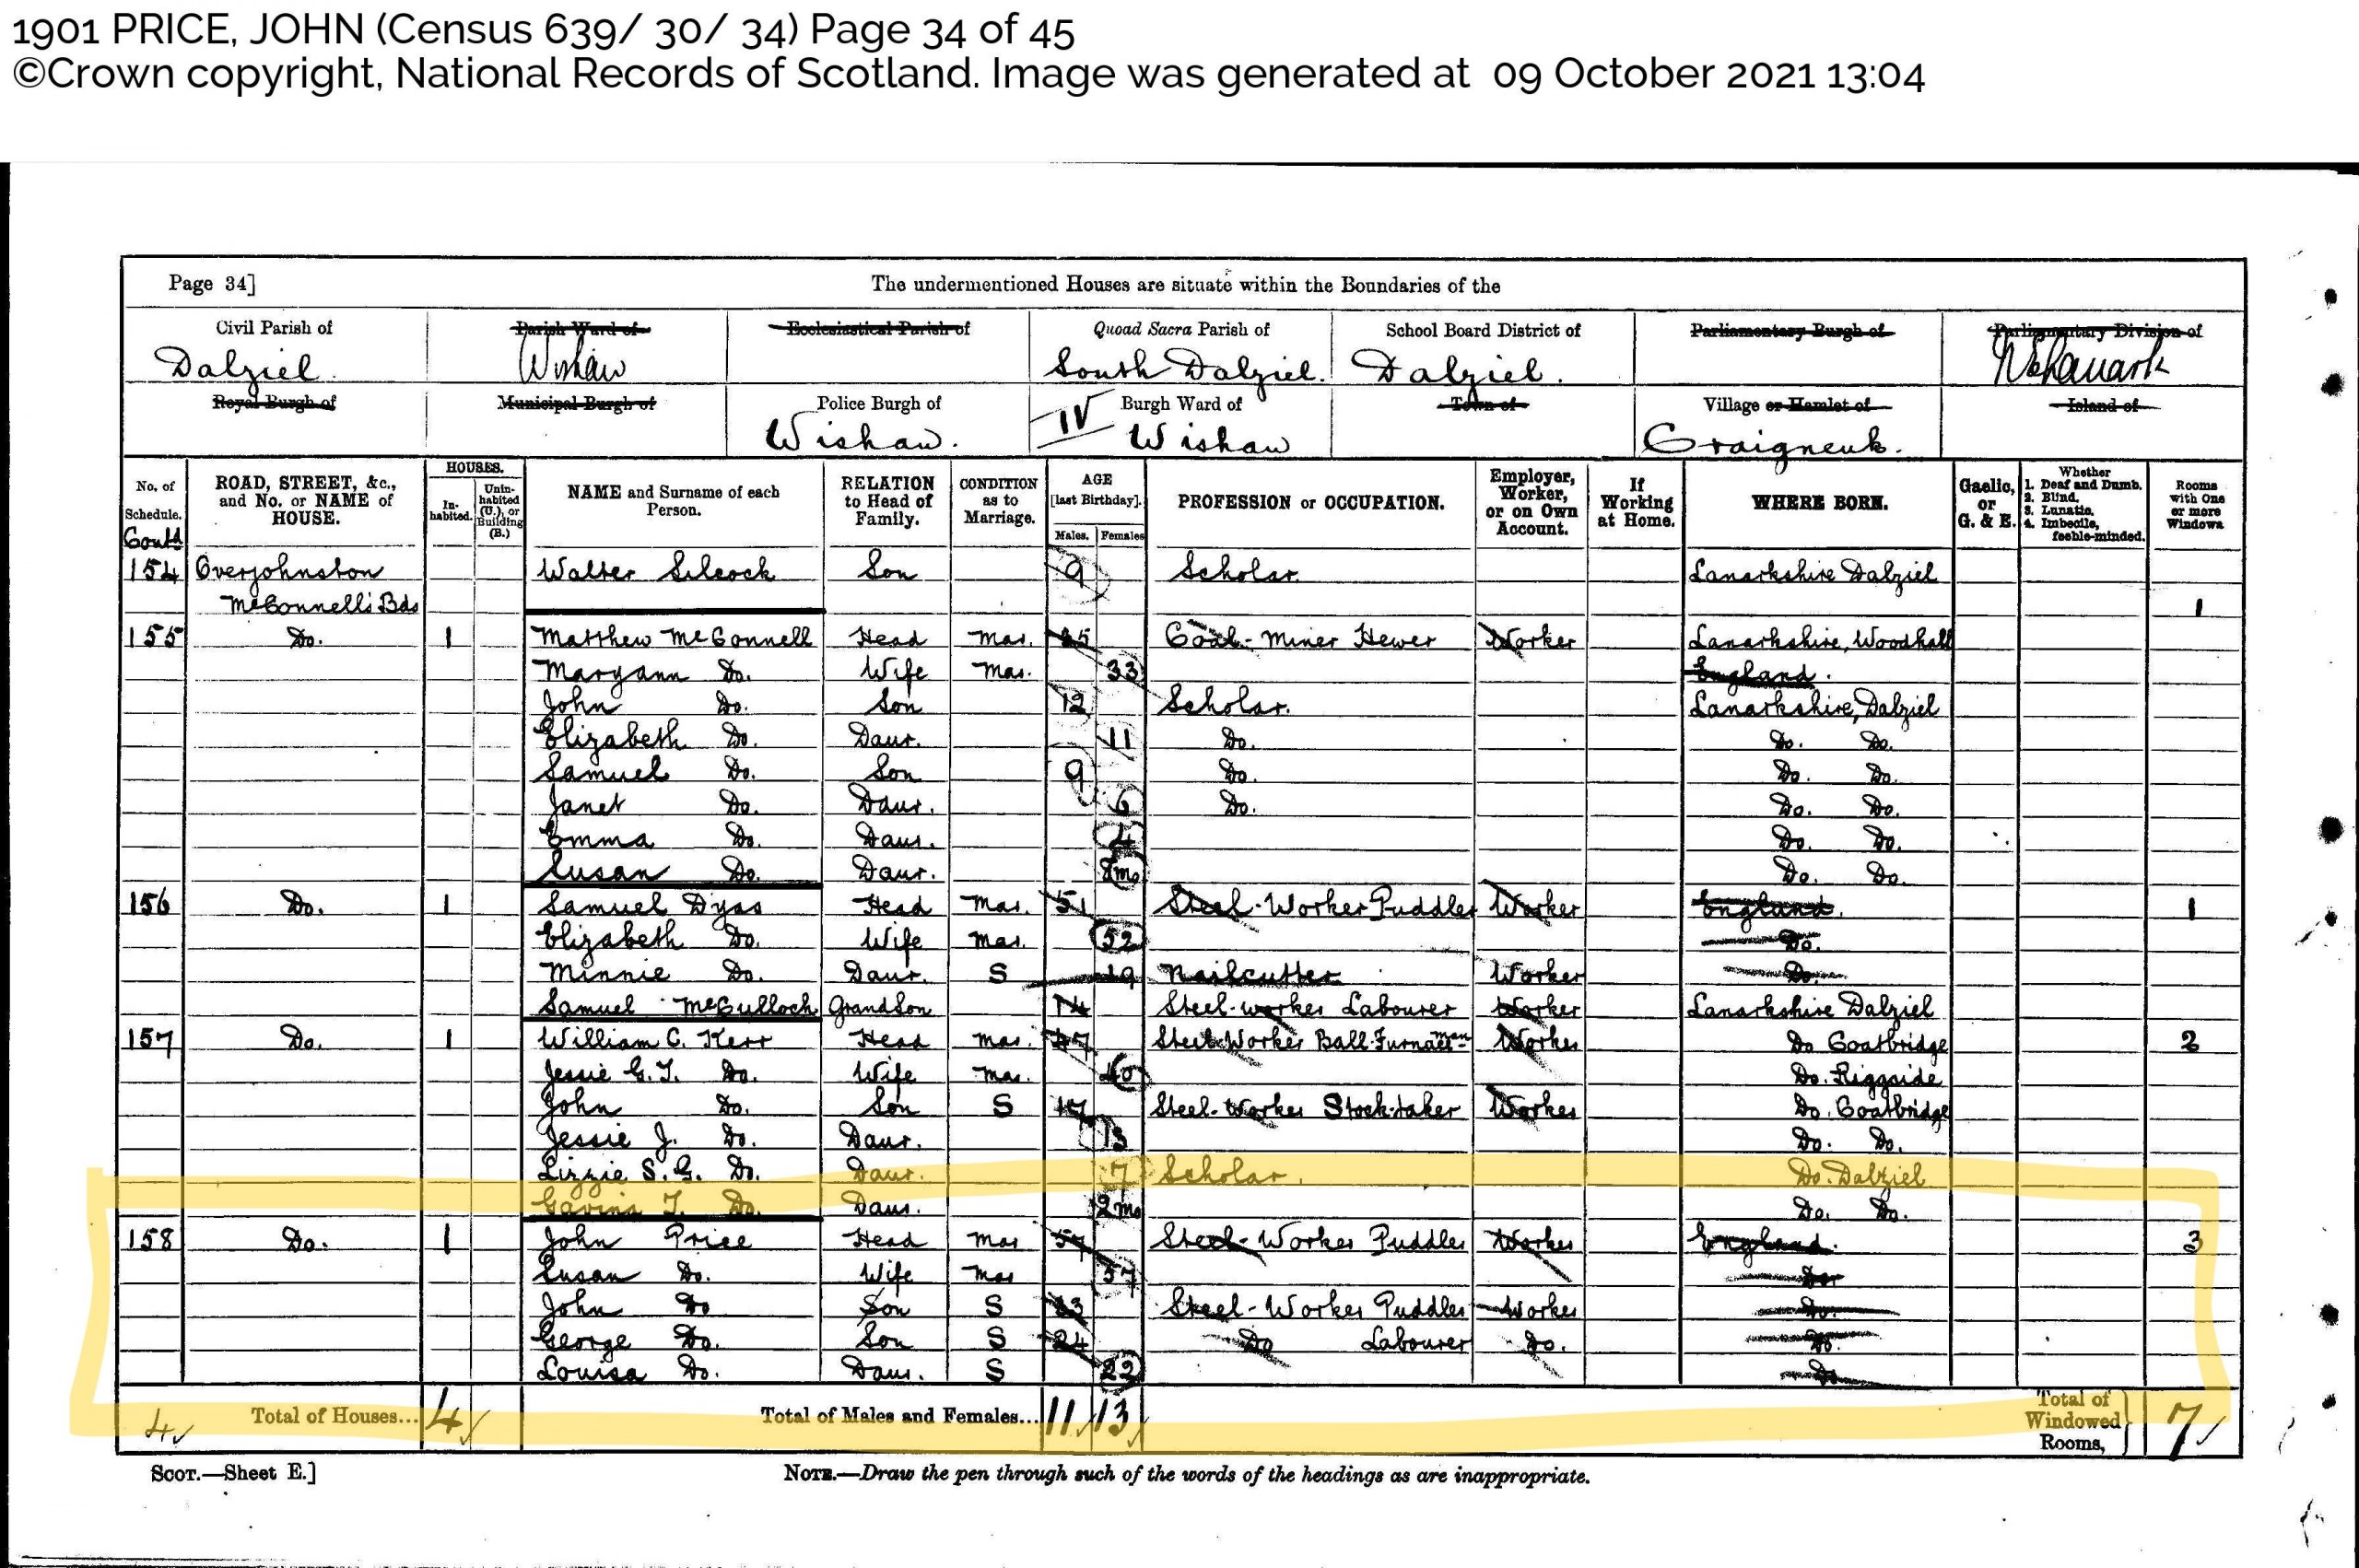 1901 PRICE, JOHN (Census 639/ 30/ 34) Page 34 of 45
©Crown copyright, National Records of Scotland. Image was generated at 09 October 2021 13:04
Page 34] The undermentioned Houses are situate within the Boundaries of the
Civil Parish of Parish Ward of Ecclesiastical Parish of Quoad Sacra Parish of School Board District of Parliamentary Burgh of Parliamentary Division of
Dalziel Wishaw South Dalziel. Dalziel. N.E. Lanark
Royal Burgh of Municipal Burgh of Police Burgh of Burgh Ward of Town of Village or Hamlet of Island of
Wishaw. IV Wishaw Craigneuk.
No. of Schedule. ROAD, STREET, &c., and No. or NAME of HOUSE. HOUSES. Inhabited. Uninhabited (U.), or Building (B.) NAME and Surname of each Person. RELATION to Head of Family. CONDITION as to Marriage. AGE [last Birthday]. Males. Females PROFESSION or OCCUPATION. Employer, Worker, or on Own Account. If Working at Home. WHERE BORN. Gaelic, or G. & E. Whether 1. Deaf and Dumb. 2. Blind. 3. Lunatic. 4. Imbecile, feeble-minded. Rooms with One or more Windows
Contd
154 Overjohnston Walter Silcock Son 9 Scholar Lanarkshire Dalziel
McConnell's Bds 1
155 Do. 1 Matthew McConnell Head Mar. 35 Coal-Miner Hewer Worker Lanarkshire, Woodhall
Maryann Do. Wife Mar. 33 England.
John Do. Son 12 Scholar. Lanarkshire, Dalziel
Elizabeth Do. Daur. 11 Do. Do. Do.
Samuel Do. Son 9 Do. Do. Do.
Janet Do. Daur. 6 Do. Do. Do.
Emma Do. Daur. 4 Do. Do.
Susan Do. Daur. 8mo Do. Do.
156 Do. 1 Samuel Dyas Head Mar. 51 Steel-Worker Puddler Worker England. 1
Elizabeth Do. Wife Mar. 52 Do.
Minnie Do. Daur. S 19 Nailcutter Worker Do.
Samuel McCulloch GrandSon 14 Steel-worker Labourer Worker Lanarkshire Dalziel
157 Do. 1 William C. Kerr Head Mar. 47 Steel Worker Ball-Furnaceman Worker Do Coatbridge 2
Jessie G.T. Do. Wife Mar. 40 Do. Riggside
John Do. Son S 17 Steel-Worker Stock-taker Worker Do. Coatbridge
Jessie J. Do. Daur. 13 Do. Do.
Lizzie S.G. Do. Daur. 7 Scholar. Do. Dalziel
Gavina T. Do. Daur. 2mo Do. Do.
158 Do. 1 John Price Head Mar Steel-Worker Puddler Worker England. 3
Susan Do. Wife Mar 57 Do.
John Do Son S 33 Steel-Worker Puddler Worker Do.
George Do. Son S 24 Do Labourer Do. Do.
Louisa Do. Daur. S 22 Do
4 Total of Houses... 4 Total of Males and Females... 11 13 Total of Windowed Rooms, 7
SCOT.—Sheet E.] NOTE.—Draw the pen through such of the words of the headings as are inappropriate.